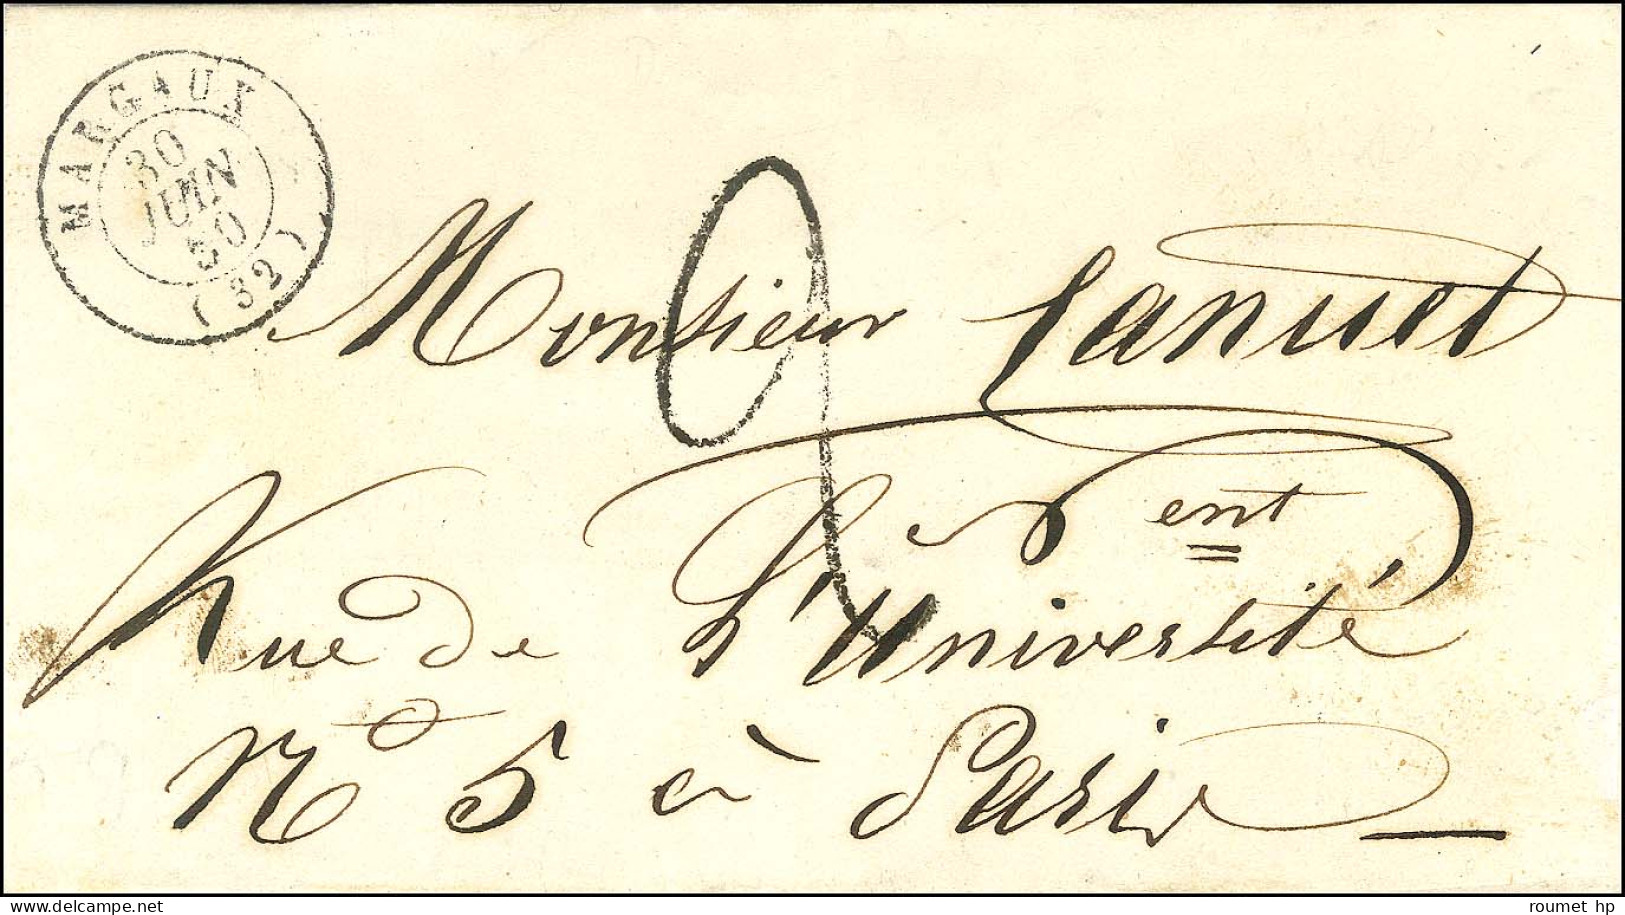 MARGAUX
30
JUIN
50
(32)
2
Monsieur Lanuet
ent
Rue de L'Université
No 5 à Paris
delcampe.net
roumet hp